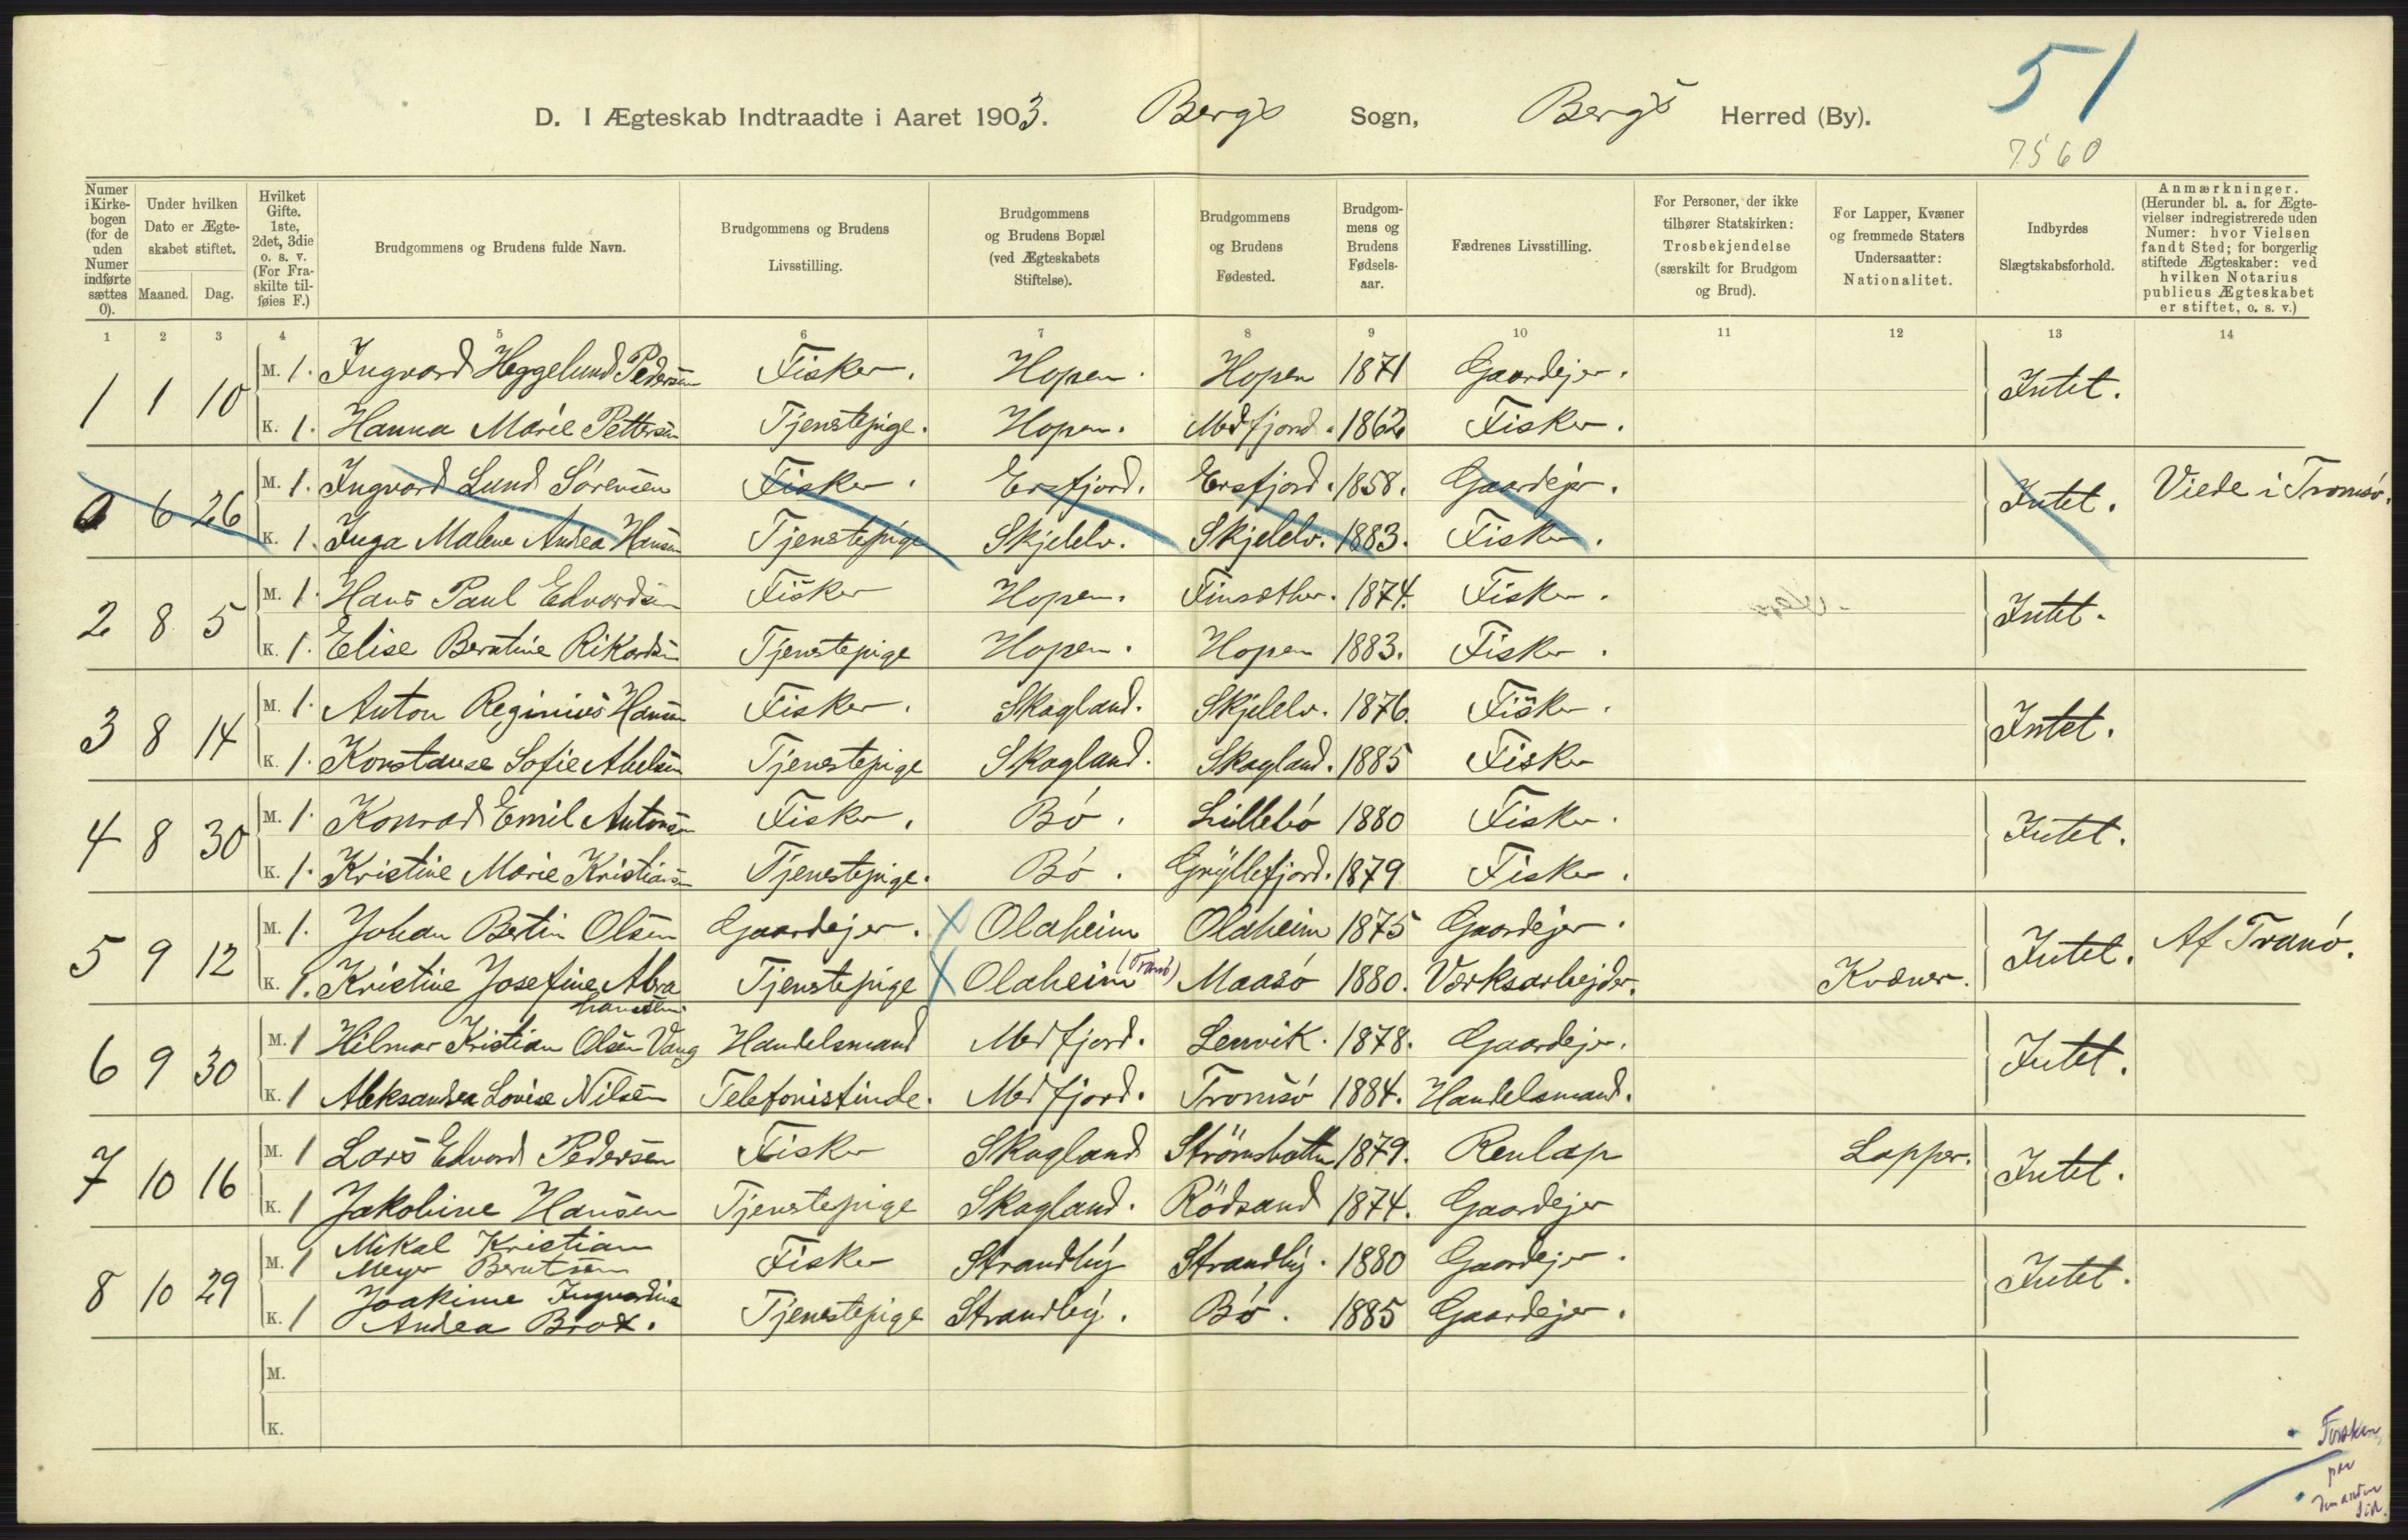 51
D. I Ægteskab Indtraadte i Aaret 1903. Bergs Sogn, Bergs Herred (By).
7560
Numer i Kirkebogen (for de uden Numer indførte sættes 0). | Under hvilken Dato er Ægteskabet stiftet. Maaned. Dag. | Hvilket Gifte. 1ste, 2det, 3die o. s. v. (For Fraskilte tilføies F.) | Brudgommens og Brudens fulde Navn. | Brudgommens og Brudens Livsstilling. | Brudgommens og Brudens Bopæl (ved Ægteskabets Stiftelse). | Brudgommens og Brudens Fødested. | Brudgommens og Brudens Fødselsaar. | Fædrenes Livsstilling. | For Personer, der ikke tilhører Statskirken: Trosbekjendelse (særskilt for Brudgom og Brud). | For Lapper, Kvæner og fremmede Staters Undersaatter: Nationalitet. | Indbyrdes Slægtskabsforhold. | Anmærkninger. (Herunder bl. a. for Ægtevielser indregistrerede uden Numer: hvor Vielsen fandt Sted; for borgerlig stiftede Ægteskaber: ved hvilken Notarius publicus Ægteskabet er stiftet, o. s. v.)
1 2 3 4 5 6 7 8 9 10 11 12 13 14
1 1 10 M. 1. Ingvard Heggelund Pedersen Fisker. Hopen. Hopen 1871 Gaardejer. Intet.
K. 1. Hanna Marie Pettersen Tjenstepige. Hopen. Medfjord. 1862 Fisker.
0 6 26 M. 1. Ingvard Lund Sørensen Fisker. Ersfjord. Ersfjord. 1858. Gaardejer. Intet. Viede i Tromsø.
K. 1. Inga Malene Andrea Hansen Tjenstepige Skjelelv. Skjelelv. 1883. Fisker.
2 8 5 M. 1. Hans Paul Edvardsen Fisker Hopen. Finsæther. 1874. Fisker. Intet.
K. 1. Elise Berntine Rikardsen Tjenstepige Hopen. Hopen 1883. Fisker.
3 8 14 M. 1. Anton Reginius Hansen Fisker. Skagland. Skjelelv. 1876. Fisker. Intet.
K. 1. Konstanse Sofie Abelsen Tjenestepige Skagland. Skagland. 1885 Fisker
4 8 30 M. 1. Konrad Emil Antonsen Fisker. Bø. Lillebø 1880 Fisker. Intet.
K. 1. Kristine Marie Kristiansen Tjenestepige. Bø. Gryllefjord. 1879 Fisker.
5 9 12 M. 1. Johan Bertin Olsen Gaardejer. X Olaheim Olaheim 1875 Gaardejer. Intet. Af Tranø.
K. 1. Kristine Josefine Abrahamsen Tjenstepige X Olaheim (Tranø) Maasø 1880. Værksarbejder. Kvæner.
6 9 30 M. 1 Hilmar Kristian Olsen Vang Handelsmand Medfjord. Lenvik. 1878. Gaardejer. Intet.
K. 1 Aleksandra Lovise Nilsen Telefonistinde. Medfjord. Tromsø 1884. Handelsmand.
7 10 16 M. 1 Lars Edvard Pedersen Fisker Skagland Strömsbotten 1879. Renlap Lapper. Intet.
K. 1 Jakobine Hansen Tjenstepige Skagland. Rödsand 1874. Gaardejer
8 10 29 M. 1 Mikal Kristian Meyer Berntsen Fisker Strandby Strandby. 1880 Gaardejer. Intet.
K. 1 Joakime Ingvardine Andrea Brox. Tjenestepige Strandby. Bø. 1885 Gaardejer.
M.
K.
Torsken
paa
den anden
Side.